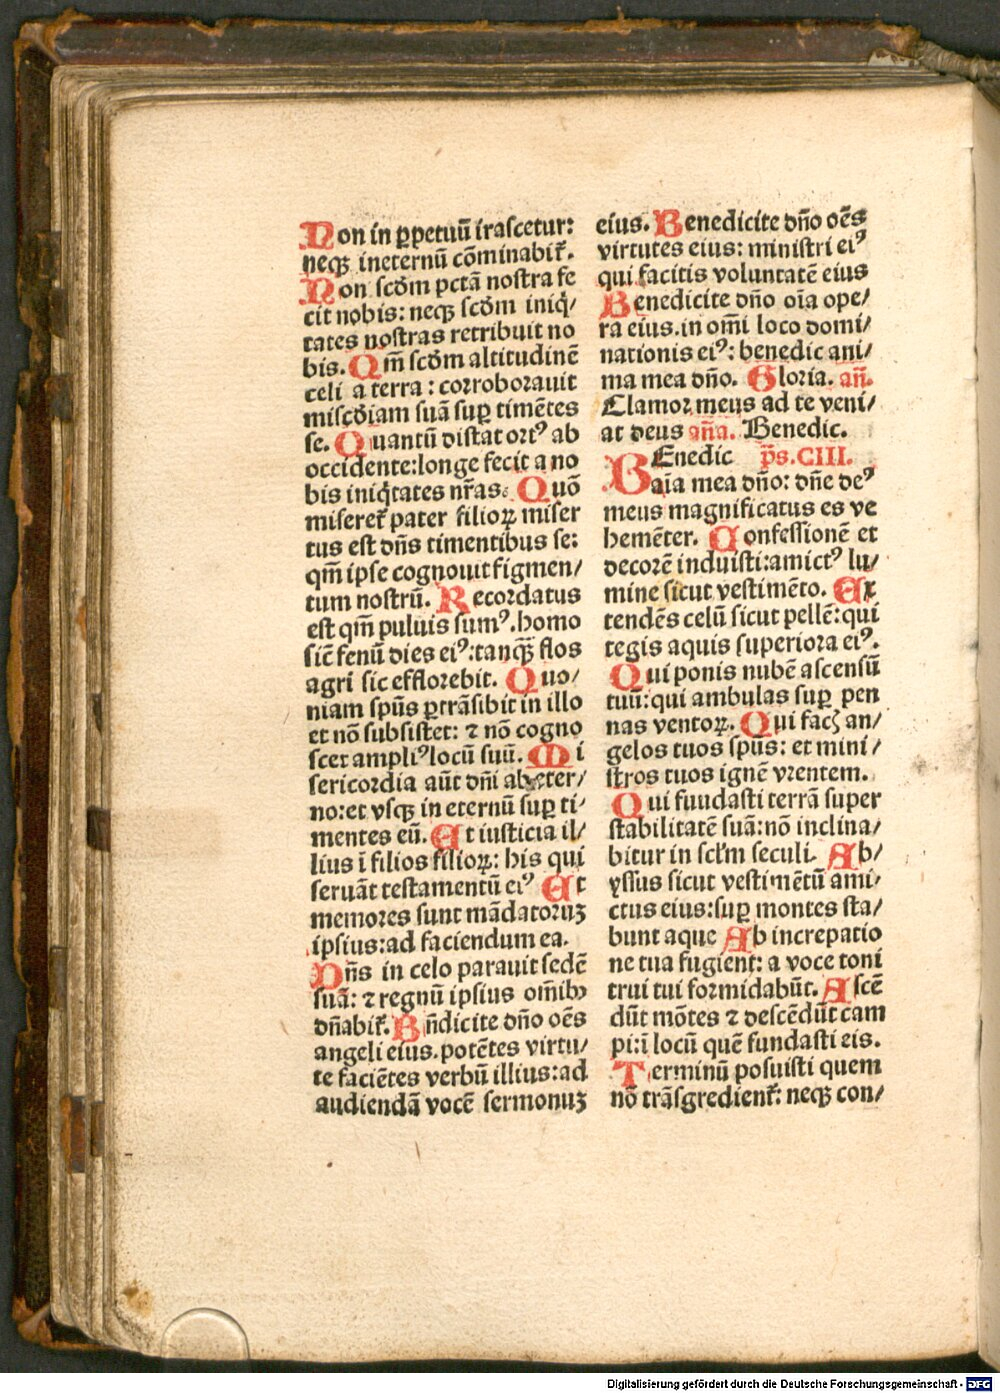 Non in ꝑpetuū irascetur:
neqꝫ ineternū cōminabit᷑.
Non scđm pctā nostra fe
cit nobis: neqꝫ scđm iniq̇/
tates nostras retribuit no
bis. Qm̄ scđm altitudinē
celi a terra : corroborauit
misc̄diam suā suꝑ timētes
se. Quantū distat ortꝰ ab
occidente:longe fecit a no
bis iniq̇tates nr̄as. Quō
miseret᷑ pater filioꝝ miser
tus est dn̄s timentibus se:
qm̄ ipse cognouit figmen/
tum nostrū. Recordatus
est qm̄ puluis sumꝰ.homo
sic̄ fenū dies eiꝰ:tanqꝫ̄ flos
agri sic efflorebit. Quo/
niam sp̄us ꝑtrāsibit in illo
et nō subsistet: ⁊ nō cogno
scet ampliꝰ locū suū. Mi
sericordia aūt dn̄i ab eter/
no:et vsqꝫ in eternū suꝑ ti/
mentes eū. Et iusticia il/
lius ī filios filioꝝ: his qui
seruāt testamentū eiꝰ Et
memores sunt mādatoruꝫ
ipsius:ad faciendum ea.
Dn̄s in celo parauit sedē
suā: ⁊ regnū ipsius om̄ibꝰ
dn̄abit᷑. Bn̄dicite dn̄o oēs
angeli eius.potētes virtu/
te faciētes verbū illius:ad
audiendā vocē sermonuꝫ
eius. Benedicite dn̄o oēs
virtutes eius: ministri eiꝰ
qui facitis voluntatē eius
Benedicite dn̄o oīa ope/
ra eius.in om̄i loco domi/
nationis eiꝰ: benedic ani/
ma mea dn̄o. Gloria. an̄.
Clamor meus ad te veni/
at deus an̄a. Benedic.
BEnedic p̄s.CIII.
aīa mea dn̄o: dn̄e deꝰ
meus magnificatus es ve
hemēter. Confessionē et
decorē induisti:amictꝰ lu/
mine sicut vestimēto. Ex
tendēs celū sicut pellē:qui
tegis aquis superiora eiꝰ.
Qui ponis nubē ascensū
tuū:qui ambulas suꝑ pen
nas ventoꝝ. Qui facꝫ an/
gelos tuos sp̄us: et mini/
stros tuos ignē vrentem.
Qui fuudasti terrā super
stabilitatē suā:nō inclina/
bitur in scl̄m seculi. Ab/
yssus sicut vestimētū ami/
ctus eius:suꝑ montes sta/
bunt aque Ab increpatio
ne tua fugient: a voce toni
trui tui formidabūt. Ascē
dūt mōtes ⁊ descēdūt cam
pi:ī locū quē fundasti eis.
Terminū posuisti quem
nō trāsgredient᷑: neqꝫ con/
Digitalisierung gefördert durch die Deutsche Forschungsgemeinschaft - DFG